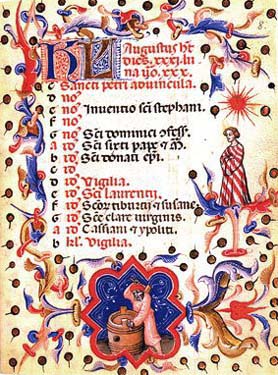 KL Augustus ht
dies. xxxj. lu
na ỹo. xxx.
Sancti petri aduincula.
d no
e no Inuentio sci stephani.
f no
g no Sci dominici ɔfess.
a io Sci sixti pape & m̄.
b io Sci donati epi.
c io
d io Vigilia.
e io Sci laurentij.
f io Scor tiburtij &
g io Sce clare uirginis.
a io Cassiani & ypoliti.
b kl. Vigilia.